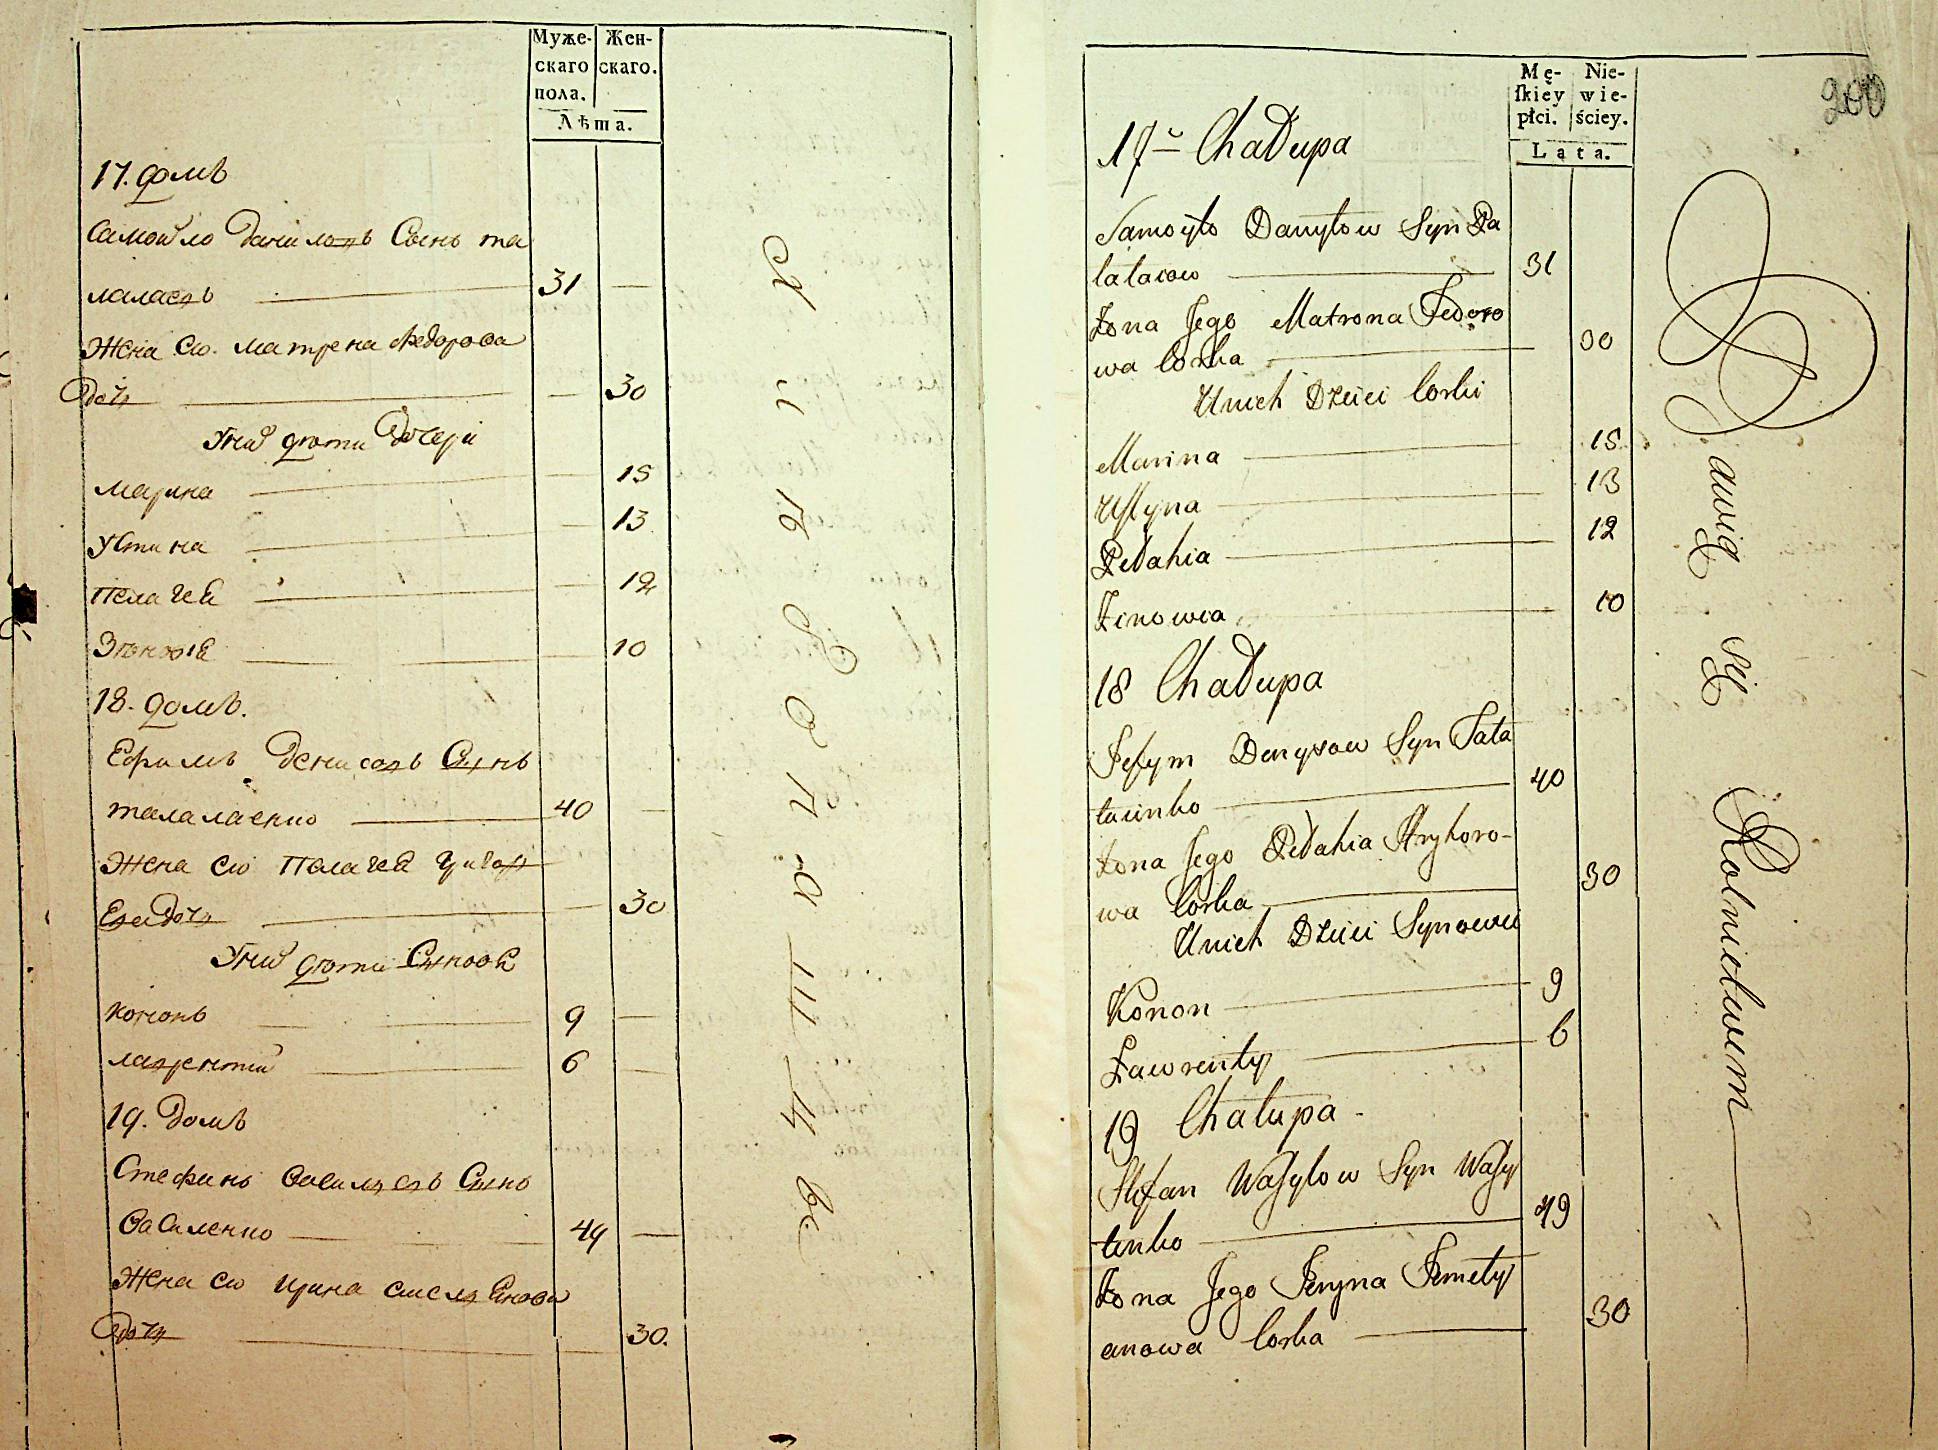 Муже-
скаго
пола.
Жен-
скаго.
Лѣта.
17. домъ
Самойло Даниловъ Сынъ та
лалаевъ 31
Жена его Матрена Федорова
Дочь 30
У них дѣти Дочери
Марина 15
Устина 13
Пелагея 12
Зѣновія 10
18. домъ.
Ефимъ Денисовъ Сынъ
талалаенко 40
Жена его Пелагея Григор
Ева Дочь 30
У них дѣти Сыновя
Кононъ 9
Лаврентий 6
19. Домъ
Стефанъ Василѣевъ Сынъ
Василенко 49
Жена его Ирина
Дочь 30.
Mę-
ſkiey
płci.
Nie-
wie-
ściey.
Lata.
200
17 Chałupa
Samoyło Danyłow Syn Ta
lałaiow 31
Żona Jego Matrona Fedoro
wa Corka 30
U nich Dzieci Corki
Marina 15
Uſtyna 13
Pełahia 12
Zinowia 10
18 Chałupa
Jefym Denysow Syn Tała
łaienko 40
Żona Jego Pełahia Hryhoro-
wa Corka 30
U nich Dzieci Synowie
Konon 9
Ławrenty 6
19 Chałupa
Stefan Waſylow Syn Waſy
lenko 49
Żona Jego Jeryna
anowa Corka 30
Bawią się Rolnictwem